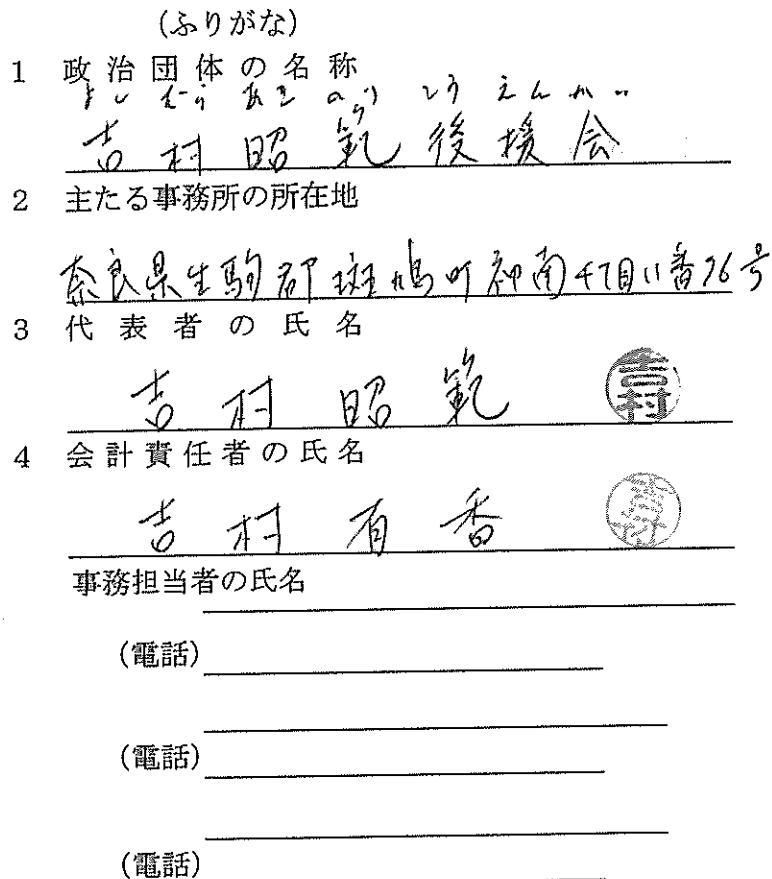 (ふりがな)
1 政治団体の名称
よしむらあきのりこうえんかい
吉村昭範後援会
2 主たる事務所の所在地
奈良県生駒郡斑鳩町神南4丁目11番26号
3 代表者の氏名
吉村昭範 吉村
4 会計責任者の氏名
吉村有香 吉村
事務担当者の氏名
(電話)
(電話)
(電話)